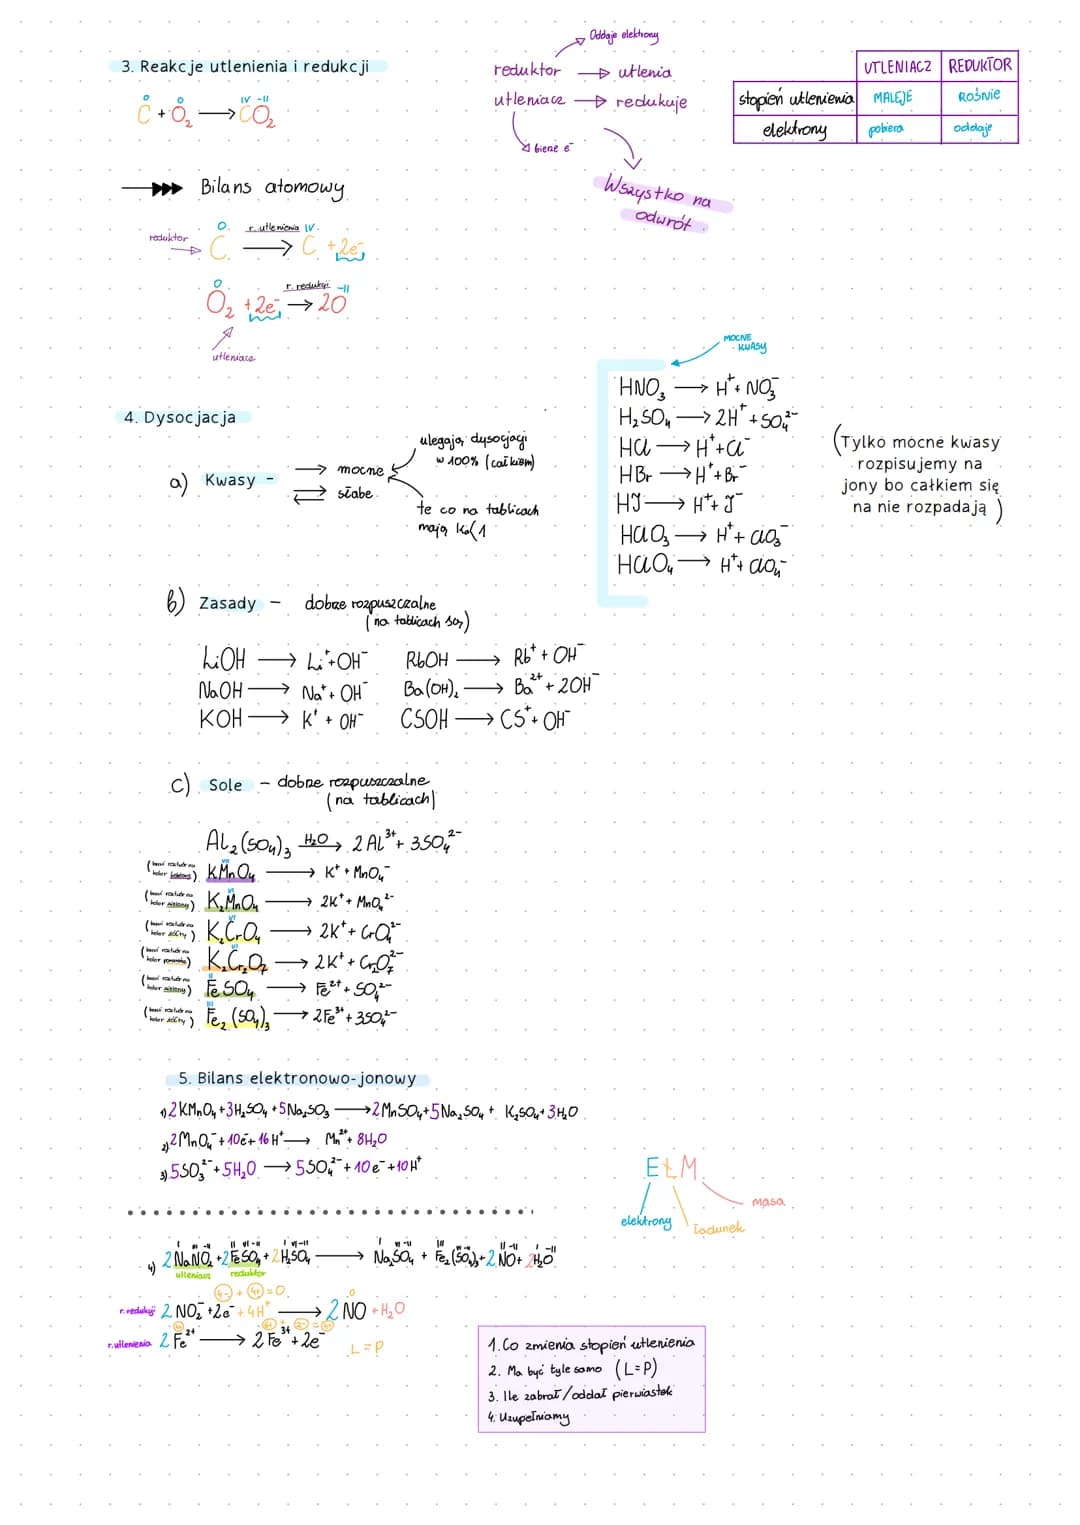 3. Reakcje utlenienia i redukcji
0 0 IV -II
C + O₂ → CO₂
Oddaje elektrony
reduktor → utlenia
utleniacz → redukuje
bierze e⁻
Wszystko na
odwrót
UTLENIACZ REDUKTOR
stopień utlenienia MALEJE ROŚNIE
elektrony pobiera oddaje
Bilans atomowy
0 r. utlenienia IV
reduktor C → C + 2e⁻
0 r. redukcji -II
O₂ + 2e⁻ → 2O
utleniacz
4. Dysocjacja
a) Kwasy -
→ mocne
⇄ słabe
ulegają dysocjacji
w 100% (całkiem)
te co na tablicach
mają
MOCNE
KWASY
HNO₃ → H⁺ + NO₃⁻
H₂SO₄ → 2H⁺ + SO₄²⁻
HCl → H⁺ + Cl⁻
HBr → H⁺ + Br⁻
HJ → H⁺ + J⁻
HClO₃ → H⁺ + ClO₃⁻
HClO₄ → H⁺ + ClO₄⁻
(Tylko mocne kwasy
rozpisujemy na
jony bo całkiem się
na nie rozpadają)
b) Zasady - dobrze rozpuszczalne
(na tablicach są)
LiOH → Li⁺ + OH⁻ RbOH → Rb⁺ + OH⁻
NaOH → Na⁺ + OH⁻ Ba(OH)₂ → Ba²⁺ + 2OH⁻
KOH → K⁺ + OH⁻ CSOH → CS⁺ + OH⁻
c) Sole - dobrze rozpuszczalne
(na tablicach)
Al₂(SO₄)₃ H₂O → 2Al³⁺ + 3SO₄²⁻
VII
KMnO₄ → K⁺ + MnO₄⁻
VI
(barwi roztwór na
kolor zielony) K₂MnO₄ → 2K⁺ + MnO₄²⁻
VI
(barwi roztwór na
kolor żółty) K₂CrO₄ → 2K⁺ + CrO₄²⁻
VI
(barwi roztwór na
kolor) K₂Cr₂O₇ → 2K⁺ + Cr₂O₇²⁻
II
(barwi roztwór na
kolor zielony) FeSO₄ → Fe²⁺ + SO₄²⁻
III
(barwi roztwór na
kolor żółty) Fe₂(SO₄)₃ → 2Fe³⁺ + 3SO₄²⁻
5. Bilans elektronowo-jonowy
1) 2KMnO₄ + 3H₂SO₄ + 5Na₂SO₃ → 2MnSO₄ + 5Na₂SO₄ + K₂SO₄ + 3H₂O
2) 2MnO₄⁻ + 10e⁻ + 16H⁺ → Mn²⁺ + 8H₂O
3) 5SO₃²⁻ + 5H₂O → 5SO₄²⁻ + 10e⁻ + 10H⁺
EŁM
elektrony
ładunek
masa
4) 2NaNO₂ + 2FeSO₄ + 2H₂SO₄ → Na₂SO₄ + Fe₂(SO₄)₃ + 2NO + 2H₂O
utleniacz reduktor
r. redukcji 2NO₂⁻ + 2e⁻ + 4H⁺ → 2NO + H₂O
r. utlenienia 2Fe²⁺ → 2Fe³⁺ + 2e⁻
L=P
1. Co zmienia stopień utlenienia
2. Ma być tyle samo (L=P)
3. Ile zabrał/oddał pierwiastek
4. Uzupełniamy